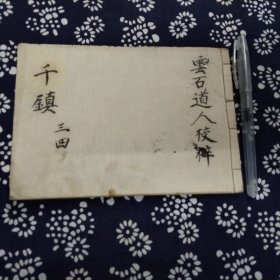 雲石道人校梓
千鎮
三四